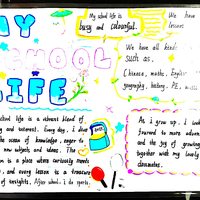 MY
SCHOOL
LIFE
My school life is
busy and colourful.
We have
lessons
We have all kinds
such as.
Chinese, maths, English
geography, history, PE, music
school life is a vibrant blend of
and interest. Every day, I dive
the ocean of knowledge, eager to
new subjects and ideas. The
is a place where curiosity meets
and every lesson is a treasure
of insights. After school, I do sports,
As I grow up, I look
forward to more adventures
and the joy of growing
together with my lovely
classmates.